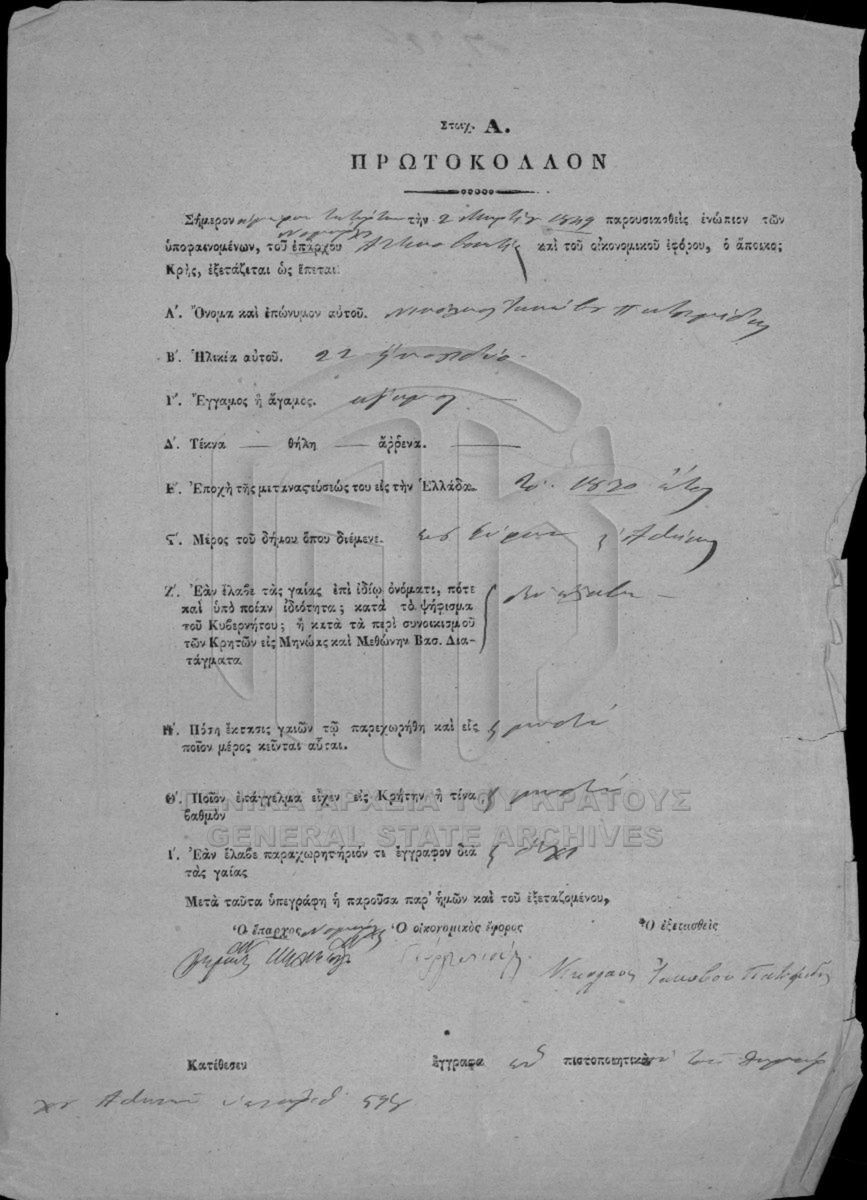 Στοιχ. Α.
ΠΡΩΤΟΚΟΛΛΟΝ
Σήμερον τὴν 2 Μαρτίου 1849 παρουσιασθεὶς ἐνώπιον τῶν
Νομάρχου
ὑποφαινομένων, τοῦ ἐπάρχου καὶ τοῦ οἰκονομικοῦ ἐφόρου, ὁ ἄποικος
Κρὴς, ἐξετάζεται ὡς ἕπεται:
Α'. Ὄνομα καὶ ἐπώνυμον αὐτοῦ. Νικόλαος Ἰακώβου
Β'. Ἡλικία αὐτοῦ. 22
Γ'. Ἔγγαμος ἢ ἄγαμος. ἄγαμος
Δ'. Τέκνα — θήλη — ἄρρενα. —
Ε'. Ἐποχὴ τῆς μεταναστεύσεώς του εἰς τὴν Ἑλλάδα. τὸ 1830 ἔτος
ΣΤ'. Μέρος τοῦ δήμου ὅπου διέμενε. εἰς Σύρον ἢ Ἀθήνας
Ζ'. Ἐὰν ἔλαβε τὰς γαίας ἐπὶ ἰδίῳ ὀνόματι, πότε
καὶ ὑπὸ ποίαν ἰδιότητα; κατὰ τὸ ψήφισμα
τοῦ Κυβερνήτου; ἢ κατὰ τὰ περὶ συνοικισμοῦ
τῶν Κρητῶν εἰς Μηνώας καὶ Μεθώνην Βασ. Δια-
τάγματα
δὲν ἔλαβε —
Η'. Πόση ἔκτασις γαιῶν τῷ παρεχωρήθη καὶ εἰς
ποῖον μέρος κεῖνται αὗται.
Θ'. Ποῖον ἐπάγγελμα εἶχεν εἰς Κρήτην ἢ τίνα
βαθμὸν
ΓΕΝΙΚΑ ΑΡΧΕΙΑ ΤΟΥ ΚΡΑΤΟΥΣ
GENERAL STATE ARCHIVES
Ι'. Ἐὰν ἔλαβε παραχωρητήριόν τι ἔγγραφον διὰ
τὰς γαίας
ὄχι
Μετὰ ταῦτα ὑπεγράφη ἡ παροῦσα παρ' ἡμῶν καὶ τοῦ ἐξεταζομένου,
Ὁ ἔπαρχος Νομάρχης Ὁ οἰκονομικὸς ἔφορος Ὁ ἐξετασθεὶς
Νικόλαος Ἰακώβου
Κατέθεσεν ἔγγραφα πιστοποιητικὰ